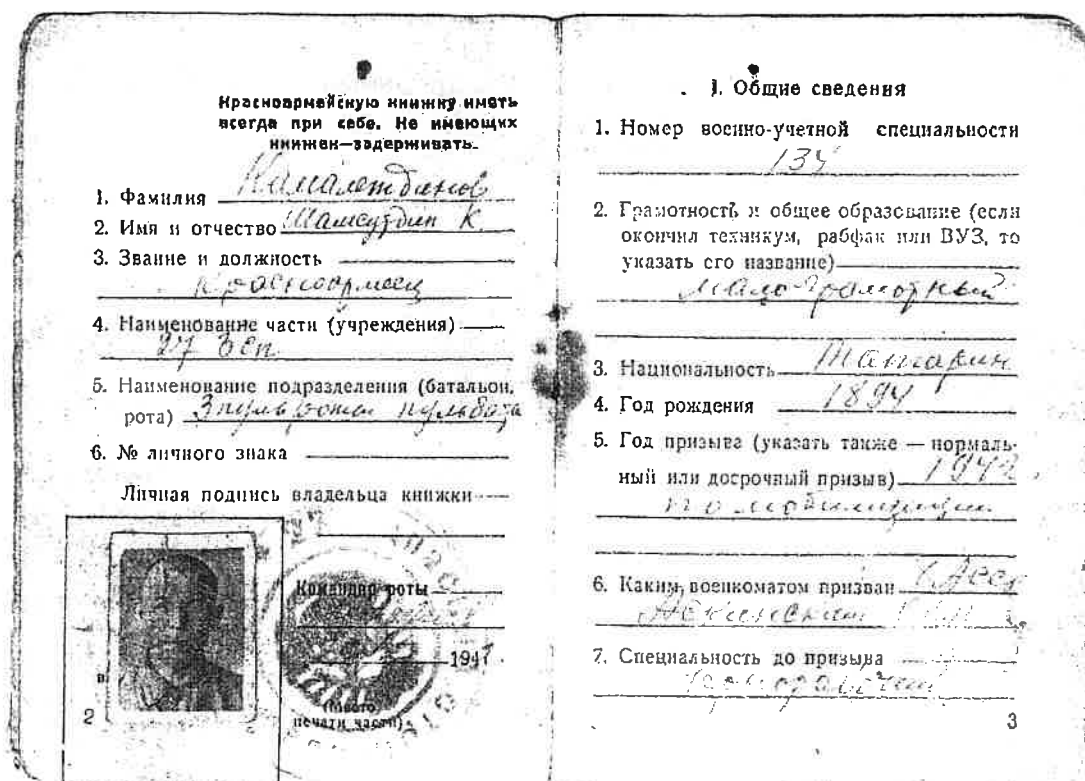 Красноармейскую книжку иметь
всегда при себе. Не имеющих
книжек—задерживать.
1. Фамилия Камалетдинов
2. Имя и отчество Шамсутдин К.
3. Звание и должность
Красноармеец
4. Наименование части (учреждения)
27 Зсп
5. Наименование подразделения (батальон,
рота) 3 пульроты пульбата
6. № личного знака
Личная подпись владельца книжки
Командир роты
194
(Место
печати части)
2
I. Общие сведения
1. Номер военно-учетной специальности
134
2. Грамотность и общее образование (если
окончил техникум, рабфак или ВУЗ, то
указать его название)
малограмотный
3. Национальность Татарин
4. Год рождения 1894
5. Год призыва (указать также — нормаль-
ный или досрочный призыв) 1942
по мобилизации
6. Каким военкоматом призван
Аскинским
7. Специальность до призыва
3